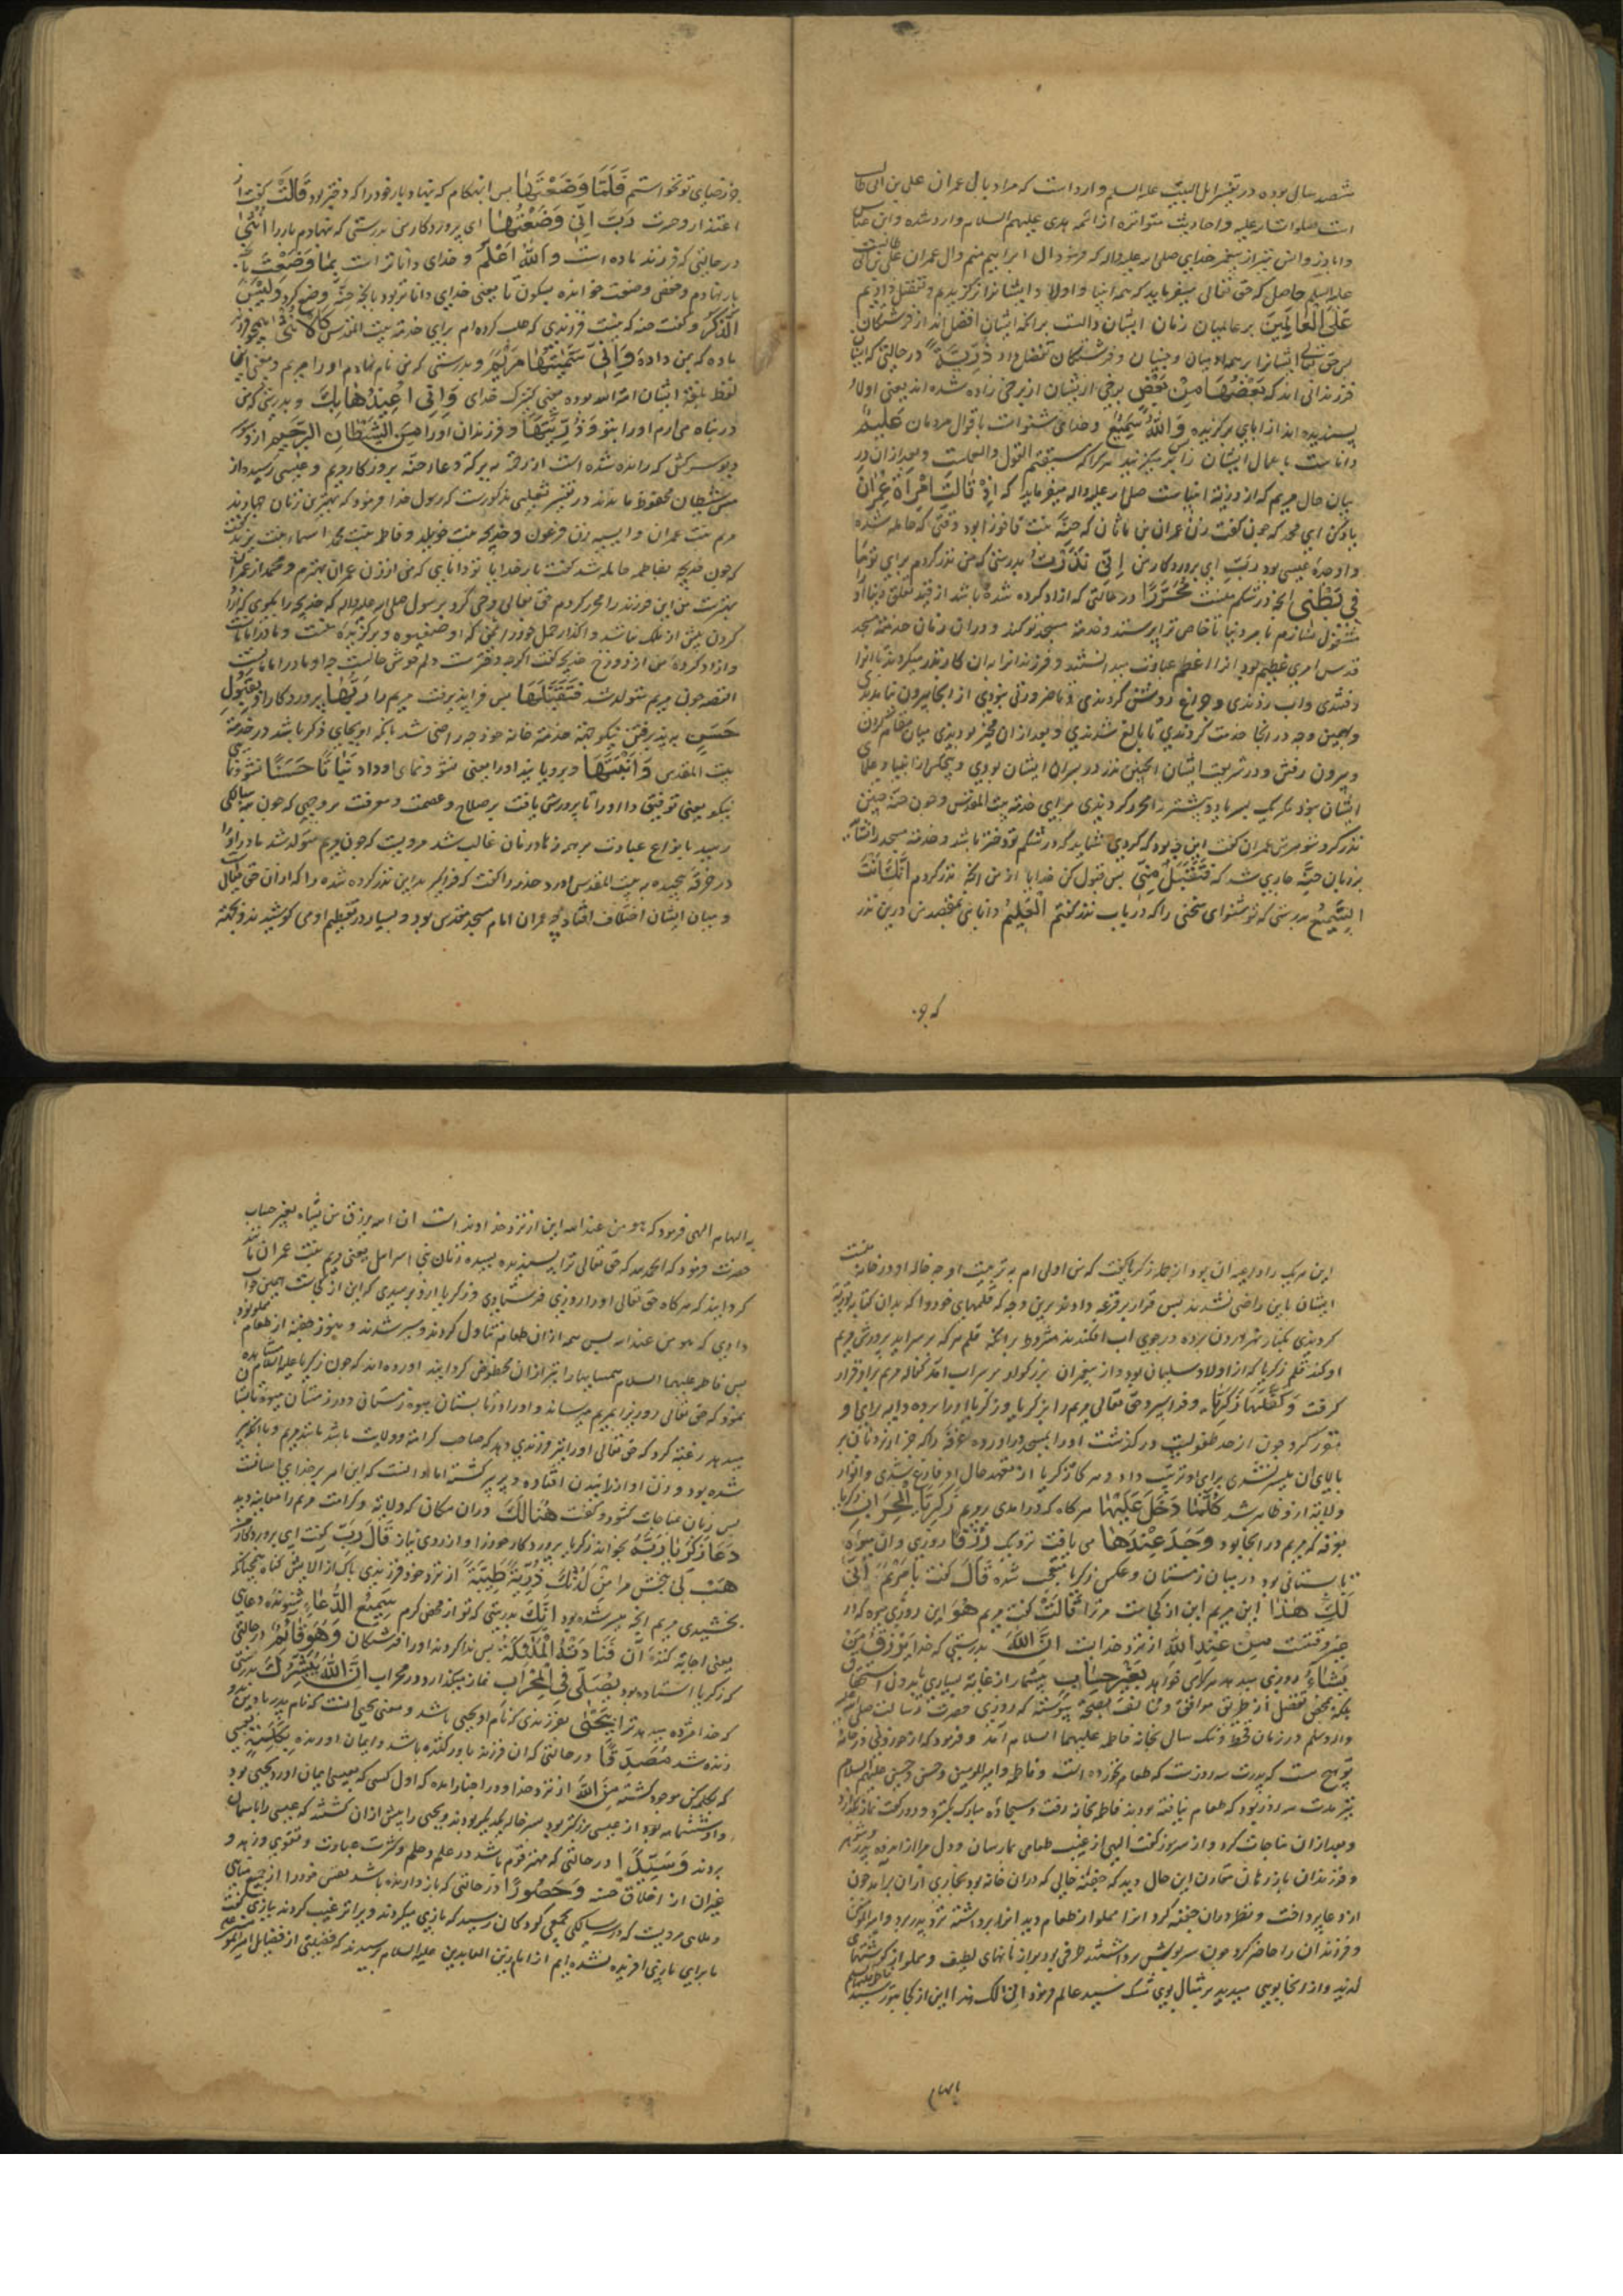 ششصد سال بوده در تفسیر اهل البیت علیه السلم وارد است که مراد بال عمران علی بن ابی طالب
است صلوات الله علیه و احادیث متواتره از ائمه هدی علیهم السلام وارد شده و ابن عباس
و اباذر و انس نیز از پیغمبر خدای صلی الله علیه واله که فرمود ال ابراهیم منم وال عمران علی بن ابی طالب
علیه السلم حاصل که حق تعالی میفرماید که همه انبیا و اولاد ایشانرا برگزیدیم و تفضیل دادیم
عَلَی الْعَالَمِینَ بر عالمیان زمان ایشان
پس حق تعالی ایشانرا بر همه ادمیان و جنیان و فرشتگان تفضیل داد ذُرِّیَّةً در حالتی که ایشان
فرزندانی اند که بَعْضُهَا مِنْ بَعْضٍ برخی از یشان از برخی زاده شده اند یعنی اولاد
پسندیده اند از ابای برگزیده وَاللهُ سَمِیعٌ و خدای شنوا ست باقوال مردمان عَلِیمٌ
دانا ست باعمال ایشان
بیان حال مریم که از ذریه انبیاست صلی الله علیه واله میفرماید که اِذْ قَالَتِ امْرَأَةُ عِمْرَانَ
یاد کن ای محمد که چون گفت زن عمران بن ماثان که حَنَّه بنت فاقوذا بود وقتی که حامله شده
و او جده عیسی بود رَبِّ ای پروردکار من اِنِّی نَذَرْتُ بدرستی که من نذر کردم برای تو مَا
فِی بَطْنِی انچه در شکم منست مُحَرَّرًا در حالتی که ازاد کرده شده باشد از قید تعلق دنیا او را
مشغول نسازم بامر دنیا تا خاص ترا پرستد و خدمة مسجد تو کند و دران زمان خدمة مسجد
قدس امری عظیم بود انرا اعظم عبادت میدانستند و فرزندانرا بدان کار نذر میکردند تا انرا
رفتندی و اب زدندی و چراغ روشن کردندی و تا ضرورتی نبودی از انجا بیرون نیامدندی
و بهمین وجه در انجا خدمت کردندی تا بالغ شدندی و بعد ازان مخیر بودندی میان مقام کردن
و بیرون رفتن و در شریعت ایشان اینچنین نذر در پسران ایشان بودی و هیچکس از انبیا و علمای
ایشان نبود مگر یک پسر یا دو بیشتر را محرر کردندی برای خدمة بیت المقدس و چون حنه چنین
نذر کرد شوهرش عمران گفت این چه بود که کردی شاید که در شکم تو دختر باشد و خدمة مسجد را نشاید
بر زبان حنَّه جاری شد که فَتَقَبَّلْ مِنِّی پس قبول کن خدایا از من انچه نذر کردم اِنَّكَ اَنْتَ
السَّمِیعُ بدرستی که تو شنوای سخنی را که در باب نذر گفتم الْعَلِیمُ دانایی بمقصد من درین نذر
که جز
جز رضای تو نخواستم فَلَمَّا وَضَعَتْهَا پس انهنکام که بنهاد بار خود را که دختر بود قَالَتْ گفت از
اعتذار و حسرت رَبِّ اِنِّی وَضَعْتُهَا ای پروردکار من بدرستی که نهادم بار را اُنْثَی
در حالتی که فرزند ماده است وَاللهُ اَعْلَمُ و خدای داناتر است بِمَا وَضَعَتْ بانچه
بار نهادم و حفص وضعت خوانده بسکون تا یعنی خدای داناتر بود بانچه حنَّه وضع کرد وَلَیْسَ
الذَّكَرُ و گفت حنه که نیست فرزندی که طلب کرده ام برای خدمة بیت المقدس كَالْاُنْثَی همچو فرزند
ماده که بمن داده وَاِنِّی سَمَّیْتُهَا مَرْیَمَ و بدرستی که من نام نهادم او را مریم و معنی اینجا
لفظ بلغة ایشان امة الله بوده یعنی کنیزک خدای وَاِنِّی اُعِیذُهَا بِكَ و بدرستی که من
در پناه می ارم او را بتو وَذُرِّیَّتَهَا و فرزندان او را مِنَ الشَّیْطَانِ الرَّجِیمِ از وسوسه
دیو سرکش که رانده شده است از رحمة به برکة دعاء حنَّه پروردکار مریم و عیسی را از
مس شیطان محفوظ ماندند در تفسیر ثعلبی مذکورست که رسول خدا فرمود که بهترین زنان چهارند
مریم بنت عمران و اسیه زن فرعون و خدیجه بنت خویلد و فاطمه بنت محمد
که چون خدیجه بفاطمه حامله شد گفت بار خدایا تو دانایی که من از زن عمران بهترم و محمد از عمران
بهترست من این فرزند را محرر کردم حق تعالی وحی کرد برسول صلی الله علیه واله که خدیجه را بگوی که ازاد
کردن پیش از ملک نباشد
و ازاد کرده من از دوزخ خدیجه گفت اگرچه دخترست دلم خوش
القصه چون مریم متولد شد فَتَقَبَّلَهَا پس فرا پذیرفت مریم را رَبُّهَا پروردکار او بِقَبُولٍ
حَسَنٍ به پذیرفتنی نیکو بجهة خدمة خانه خود چه راضی شد بانکه او بجای ذکر باشد در خدمة
بیت المقدس وَاَنْبَتَهَا و برویانید او را یعنی نشو و نمای او داد نَبَاتًا حَسَنًا نشو و نمای
نیکو یعنی توفیق داد او را تا پرورش یافت بر صلاح و عصمت و معرفت بر وجهی که چون به سالگی
رسید بانواع عبادت بر همه زهاد زمان غالب شد مرویست که چون مریم متولد شد مادر او را
در خرقه پیچیده به بیت المقدس اورد و گفت که فرا گیرید این نذر کرده شده را که از ان حق تعالی
و میان ایشان اختلاف افتاد چه عمران امام مسجد مقدس بود و بسیار در تعظیم او می کوشیدند و بجهة
این هر یک را داعیه ان بود زکریا گفت که من اولی ام به تربیت او چه خاله او در خانه منست
ایشان باین راضی نشدند پس قرار بر قرعه دادند برین وجه که قلمهای خود را که بدان کتابه توریة
کردندی بکنار نهر اردن برده در جوی اب افکندند مشروط بر انکه قلم هر که بر سر اید پرورش مریم
او کند قلم زکریا که از اولاد سلیمان بود و از پیغمبران بزرگ بود بر سر اب امد کفاله مریم بر او قرار
گرفت وَكَفَّلَهَا زَكَرِیَّا و فرا سپرد حق تعالی مریم را بزکریا و زکریا او را برده دایه برای او
مقرر کرد چون از حد طفولیت در گذشت او را بمسجد در اورده غرفه
بالای ان میسر نشدی برای او ترتیب داد و هر گاه زکریا از تعهد حال او فارغ شدی و انوار
ولایة از و ظاهر شد كُلَّمَا دَخَلَ عَلَیْهَا هر گاه که در امدی بروی مریم زَكَرِیَّا الْمِحْرَابَ زکریا
بغرفه که مریم در انجا بود وَجَدَ عِنْدَهَا می یافت نزدیک رِزْقًا روزی و ان میوه
تابستانی بود در میان زمستان و عکس زکریا متعجب شده قَالَ گفت یَا مَرْیَمُ اَنَّی
لَكِ هَذَا این مریم این از کجا ست مر ترا قَالَتْ گفت مریم هُوَ این روزی میوه که از
غیر وقتست مِنْ عِنْدِ اللهِ از نزد خداست اِنَّ اللهَ بدرستی که خدا یَرْزُقُ مَنْ
یَشَاءُ روزی میدهد هر کرا میخواهد بِغَیْرِ حِسَابٍ بیشمار از غایة بسیاری یا بدون استحقاق
بلکه بمحض تفضل از طریق موافق و مخالف بصحة پیوسته که روزی حضرت رسالت صلی الله علیه
و اله وسلم در زمان قحط و تنک سالی بخانه فاطمه علیهما السلام امد و فرمود که از خوردنی در خانه
تو هیچ هست که پدرت سه روزست که طعام نخورده است و فاطمه و امیر المومنین و حسن و حسین علیهم السلام
نیز مدت سه روز بود که طعام نیافته بودند فاطمه بخانه رفت و سجاده مبارک بگسترد و دو رکعت نماز بگذارد
و بعد ازان مناجات کرد و از سر سوز گفت الهی از غیب طعامی بما رسان و دل مرا از اندوه پدر و شوهر
و فرزندان باز رهان مقارن این حال دید که جفنه خالی که دران خانه بود بخاری ازان بر آمد چون
از دعا پرداخت و نظر دران جفنه کرد انرا مملو از طعام دید انرا برداشته نزد پدر برد و امیر المومنین
و فرزندان را حاضر کرد چون سرپوش برداشتند ظرفی بود پر از نانهای لطیف و مملو از گوشتهای
لذیذ و از انجا بویی میدمید بر مثال بوی مشک سید عالم فرمود انی لک هذا این از کجا بتو رسید فاطمه علیها السلم
بالهام
به الهام الهی فرمود که هو من عند الله این از نزد خداوند است ان الله یرزق من یشاء بغیر حساب
حضرت فرمود که الحمد لله که حق تعالی ترا پسندیده سیده زنان بنی اسرائیل یعنی مریم بنت عمران مانند
گردانید که هر گاه حق تعالی او را روزی فرستادی و زکریا از و پرسیدی که این از کجا ست همین جواب
دادی که هو من عند الله پس همه ازان طعام تناول کردند و سیر شدند و هنوز جفنه از طعام مملو بود
پس فاطمه علیهما السلام همسایها را نیز ازان محظوظ گردانید اورده اند که چون زکریا علیه السلام مشاهده
نمود که حق تعالی روزی را بمریم میرساند و او را در تابستان میوه زمستانی و در زمستان میوه تابستانی
میدهد رغبة کرد که حق تعالی او را نیز فرزندی دهد که صاحب کرامة و ولایت باشد مانند مریم و با انکه پیر
شده بود و زن او از زاییدن افتاده و پیر گشته اما دانست که این امر بر خدای اسانست
پس زبان مناجات گشود و گفت هُنَالِكَ دران مکان که ولایة و کرامت مریم را معاینه دید
دَعَا زَكَرِیَّا رَبَّهُ بخواند زکریا پروردکار خود را و از روی نیاز قَالَ رَبِّ گفت ای پروردکار من
هَبْ لِی ببخش مرا مِنْ لَدُنْكَ ذُرِّیَّةً طَیِّبَةً از نزد خود فرزندی پاک از الایش گناه همچنانکه
بخشیدی مریم انچه میسر شده بود اِنَّكَ بدرستی که تو از محض کرم سَمِیعُ الدُّعَاءِ شنونده دعای
یعنی اجابة کننده ان فَنَادَتْهُ الْمَلٰئِكَةُ پس ندا کردند او را فرشتگان وَهُوَ قَائِمٌ در حالتی
که زکریا استاده بود یُصَلِّی فِی الْمِحْرَابِ نماز میکذارد در محراب اِنَّ اللهَ یُبَشِّرُكَ بدرستی
که خدا مژده میدهد ترا بِیَحْیَی بفرزندی که نام او یحیی باشد و معنی یحیی انست که نام پدر باو
زنده شد مُصَدِّقًا در حالتی که ان فرزند باور کننده باشد و ایمان اورنده بِكَلِمَةٍ بعیسی
که بکلمه کن موجود گشته مِنَ اللهِ از نزد خدا و در اخبار امده که اول کسی که بعیسی ایمان اورد یحیی بود
و او ششماه بود از عیسی بزرگتر بود پسر خاله یکدیگر بودند و یحیی را پیش ازان کشتند که عیسی را باسمان
بردند وَسَیِّدًا و در حالتی که مهتر قوم باشد در علم و حلم و کثرت عبادت و تقوی و زهد و
غیر ان از اخلاق حسنه وَحَصُورًا و در حالتی که باز دارنده باشد نفس خود را از جمیع مناهی
و ملاهی مرویست که در سالکی بجمعی کودکان رسید که بازی میکردند و یرا ترغیب کردند ببازی گفت
ما برای بازی افریده نشده ایم از امام زین العابدین علیه السلام پرسیدند که فضیلتی از فضایل امیر المومنین